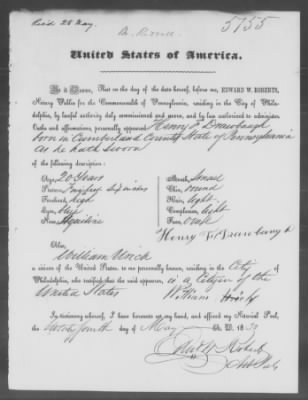 Recd. 28 May
5755
United States of America.
Be it Known, That on the day of the date hereof, before me, EDWARD W. ROBERTS,
Notary Public for the Commonwealth of Pennsylvania, residing in the City of Phila-
delphia, by lawful authority duly commissioned and sworn, and by law authorized to administer
Oaths and affirmations, personally appeared Henry F. Drawbaugh
born in Cumberland County State of Pennsylvania
as he hath sworn
of the following description:
Age, 20 Years
Mouth, Small
Stature, five feet six inches
Chin, round
Forehead, high
Hair, light
Eyes,
Complexion, light
Nose, Aquiline
Face, Oval
Henry F. Drawbaugh
Also,
William Urich
a citizen of the United States, to me personally known, residing in the City
of Philadelphia, who testified that the said appearer, is a Citizen of the
United States
William
In testimony whereof, I have hereunto set my hand, and affixed my Notarial Seal,
the day of May A. D. 18
Edw. W. Roberts
Not. Pub.